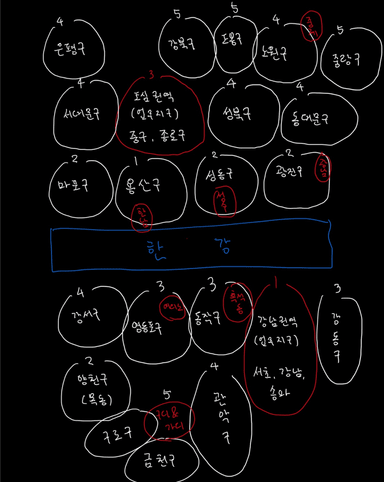 4
은평구
5
강북구
5
도봉구
4
노원구
5
중랑구
4
서대문구
3
도심권역
(업무지구)
중구, 종로구
4
성북구
4
동대문구
2
마포구
1
용산구
한남
2
성동구
성수
2
광진구
한 강
4
강서구
3
영등포구
여의도
3
동작구
흑석
1
강남권역
(업무지구)
서초, 강남,
송파
3
강동구
2
양천구
(목동)
구로구
5
구디&
가디
금천구
4
관악구